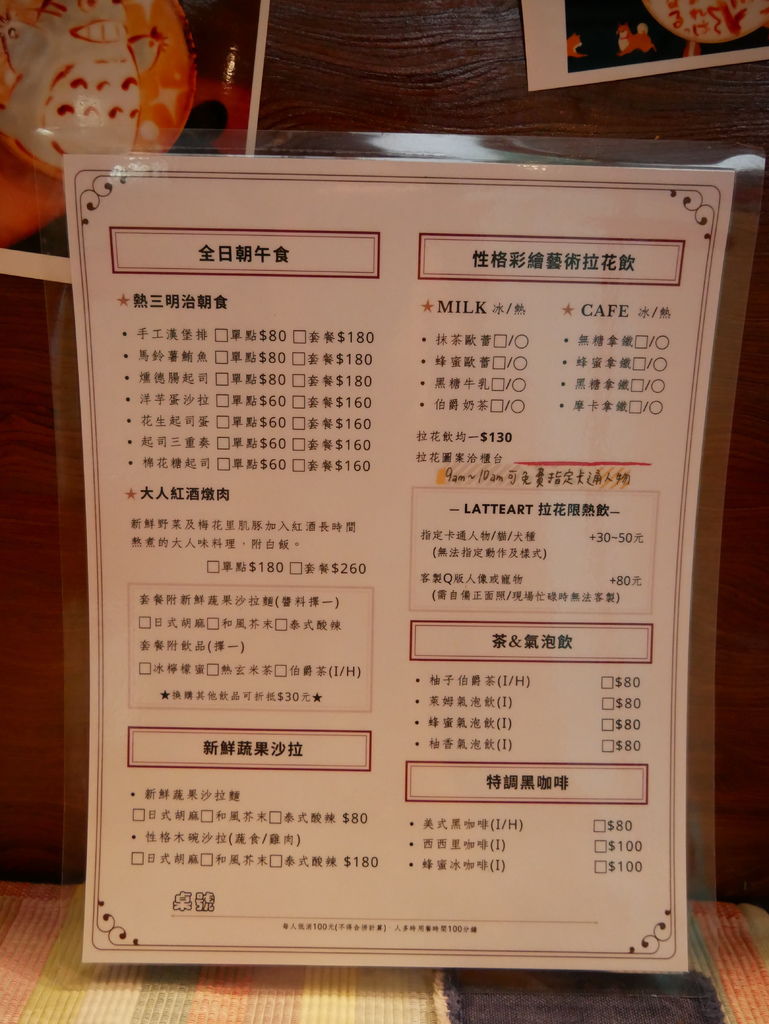 全日朝午食
★熱三明治朝食
• 手工漢堡排 □單點$80 □套餐$180
• 馬鈴薯鮪魚 □單點$80 □套餐$180
• 燻德腸起司 □單點$80 □套餐$180
• 洋芋蛋沙拉 □單點$60 □套餐$160
• 花生起司蛋 □單點$60 □套餐$160
• 起司三重奏 □單點$60 □套餐$160
• 棉花糖起司 □單點$60 □套餐$160
★大人紅酒燉肉
新鮮野菜及梅花里肌豚加入紅酒長時間
熬煮的大人味料理，附白飯。
□單點$180 □套餐$260
套餐附新鮮蔬果沙拉麵(醬料擇一)
□日式胡麻□和風芥末□泰式酸辣
套餐附飲品(擇一)
□冰檸檬蜜□熱玄米茶□伯爵茶(I/H)
★換購其他飲品可折抵$30元★
新鮮蔬果沙拉
• 新鮮蔬果沙拉麵
□日式胡麻□和風芥末□泰式酸辣 $80
• 性格木碗沙拉(蔬食/雞肉)
□日式胡麻□和風芥末□泰式酸辣 $180
性格彩繪藝術拉花飲
★MILK 冰/熱
• 抹茶歐蕾□/○
• 蜂蜜歐蕾□/○
• 黑糖牛乳□/○
• 伯爵奶茶□/○
★ CAFE 冰/熱
• 無糖拿鐵□/○
• 蜂蜜拿鐵□/○
• 黑糖拿鐵□/○
• 摩卡拿鐵□/○
拉花飲均一$130
拉花圖案洽櫃台
9am~10am可免費指定卡通人物
— LATTEART 拉花限熱飲—
指定卡通人物/貓/犬種 +30~50元
(無法指定動作及樣式)
客製Q版人像或寵物 +80元
(需自備正面照/現場忙碌時無法客製)
茶&氣泡飲
• 柚子伯爵茶(I/H) □$80
• 萊姆氣泡飲(I) □$80
• 蜂蜜氣泡飲(I) □$80
• 柚香氣泡飲(I) □$80
特調黑咖啡
• 美式黑咖啡(I/H) □$80
• 西西里咖啡(I) □$100
• 蜂蜜冰咖啡(I) □$100
桌號
每人低消100元(不得合併計算) 人多時用餐時間100分鐘